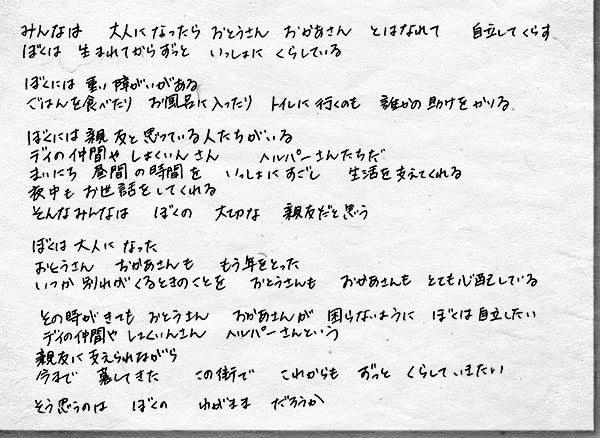 みんなは　大人になったら　おとうさん　おかあさん　とはなれて　自立してくらす
ぼくは　生まれてからずっと　いっしょに　くらしている
ぼくには　重い　障がいがある
ごはんを食べたり　お風呂に入ったり　トイレに行くのも　誰かの助けをかりる
ぼくには親友と思っている人たちがいる
デイの仲間や　しょくいんさん　ヘルパーさんたちだ
まいにち　昼間の時間を　いっしょにすごし　生活を支えてくれる
夜中も　お世話をしてくれる
そんなみんなは　ぼくの　大切な　親友だと思う
ぼくは大人に　なった
おとうさん　おかあさんも　もう年をとった
いつか　別れがくるときのことを　おとうさんも　おかあさんも　とても心配している
その時がきても　おとうさん　おかあさんが　困らないように　ぼくは自立したい
デイの仲間や　しょくいんさん　ヘルパーさんという
親友に支えられながら
今まで　暮してきた　この街で　これからも　ずっと　くらしていきたい
そう思うのは　ぼくの　わがまま　だろうか